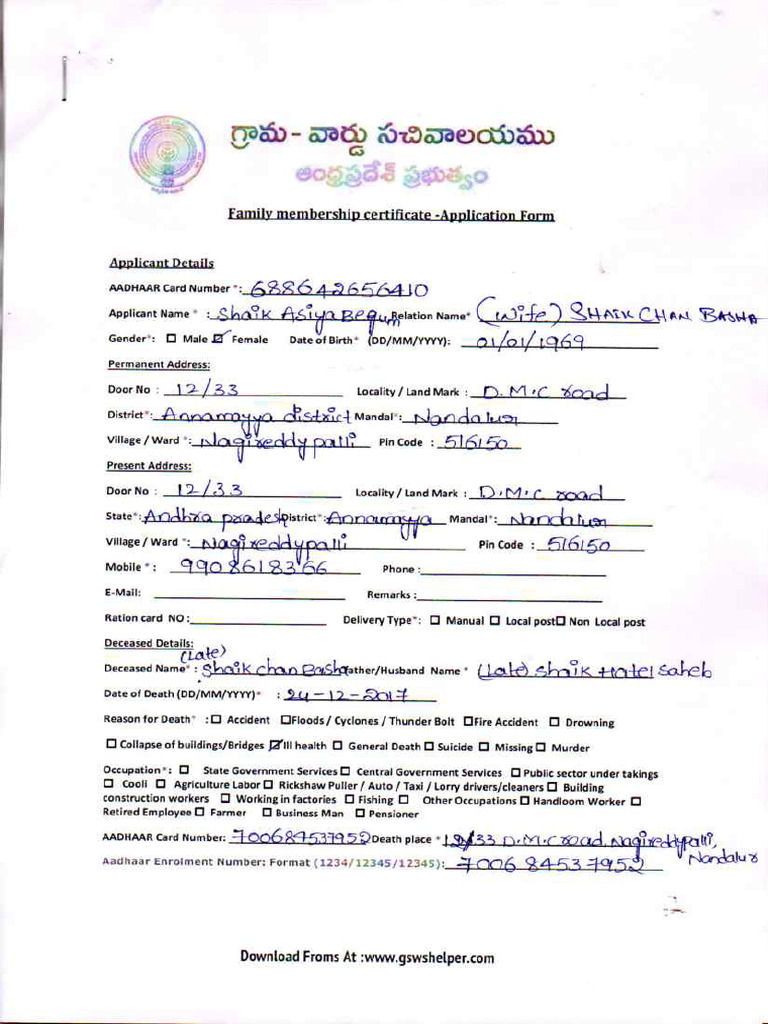 గ్రామ - వార్డు సచివాలయము
ఆంధ్రప్రదేశ్ ప్రభుత్వం
Family membership certificate -Application Form
Applicant Details
AADHAAR Card Number *: 688642656410
Applicant Name * : Shaik Asiya Begum Relation Name* (wife) SHAIK CHAN BASHA
Gender*: ☐ Male ☑ Female Date of Birth* (DD/MM/YYYY): 01/01/1969
Permanent Address:
Door No : 12/33 Locality / Land Mark : D.M.C road
District*: Annamayya district Mandal*: Nandalur
Village / Ward *: Nagireddypalli Pin Code : 516150
Present Address:
Door No : 12/33 Locality / Land Mark : D.M.C road
State*: Andhra pradesh District*: Annamayya Mandal*: Nandalur
Village / Ward *: Nagireddypalli Pin Code : 516150
Mobile * : 9908618366 Phone :
E-Mail: Remarks :
Ration card NO : Delivery Type*: ☐ Manual ☐ Local post ☐ Non Local post
Deceased Details:
(Late)
Deceased Name* : Shaik chan Basha Father/Husband Name * (late) Shaik Hatel Saheb
Date of Death (DD/MM/YYYY)* : 24-12-2017
Reason for Death* : ☐ Accident ☐Floods / Cyclones / Thunder Bolt ☐Fire Accident ☐ Drowning
☐ Collapse of buildings/Bridges ☑Ill health ☐ General Death ☐ Suicide ☐ Missing ☐ Murder
Occupation*: ☐ State Government Services ☐ Central Government Services ☐ Public sector under takings
☐ Cooli ☐ Agriculture Labor ☐ Rickshaw Puller / Auto / Taxi / Lorry drivers/cleaners ☐ Building
construction workers ☐ Working in factories ☐ Fishing ☐ Other Occupations ☐ Handloom Worker ☐
Retired Employee ☐ Farmer ☐ Business Man ☐ Pensioner
AADHAAR Card Number: 700684537952 Death place * 12/33 D.M.C road, Nagireddypalli,
Nandalur
Aadhaar Enrolment Number: Format (1234/12345/12345): 7006 84537952
Download Froms At :www.gswshelper.com